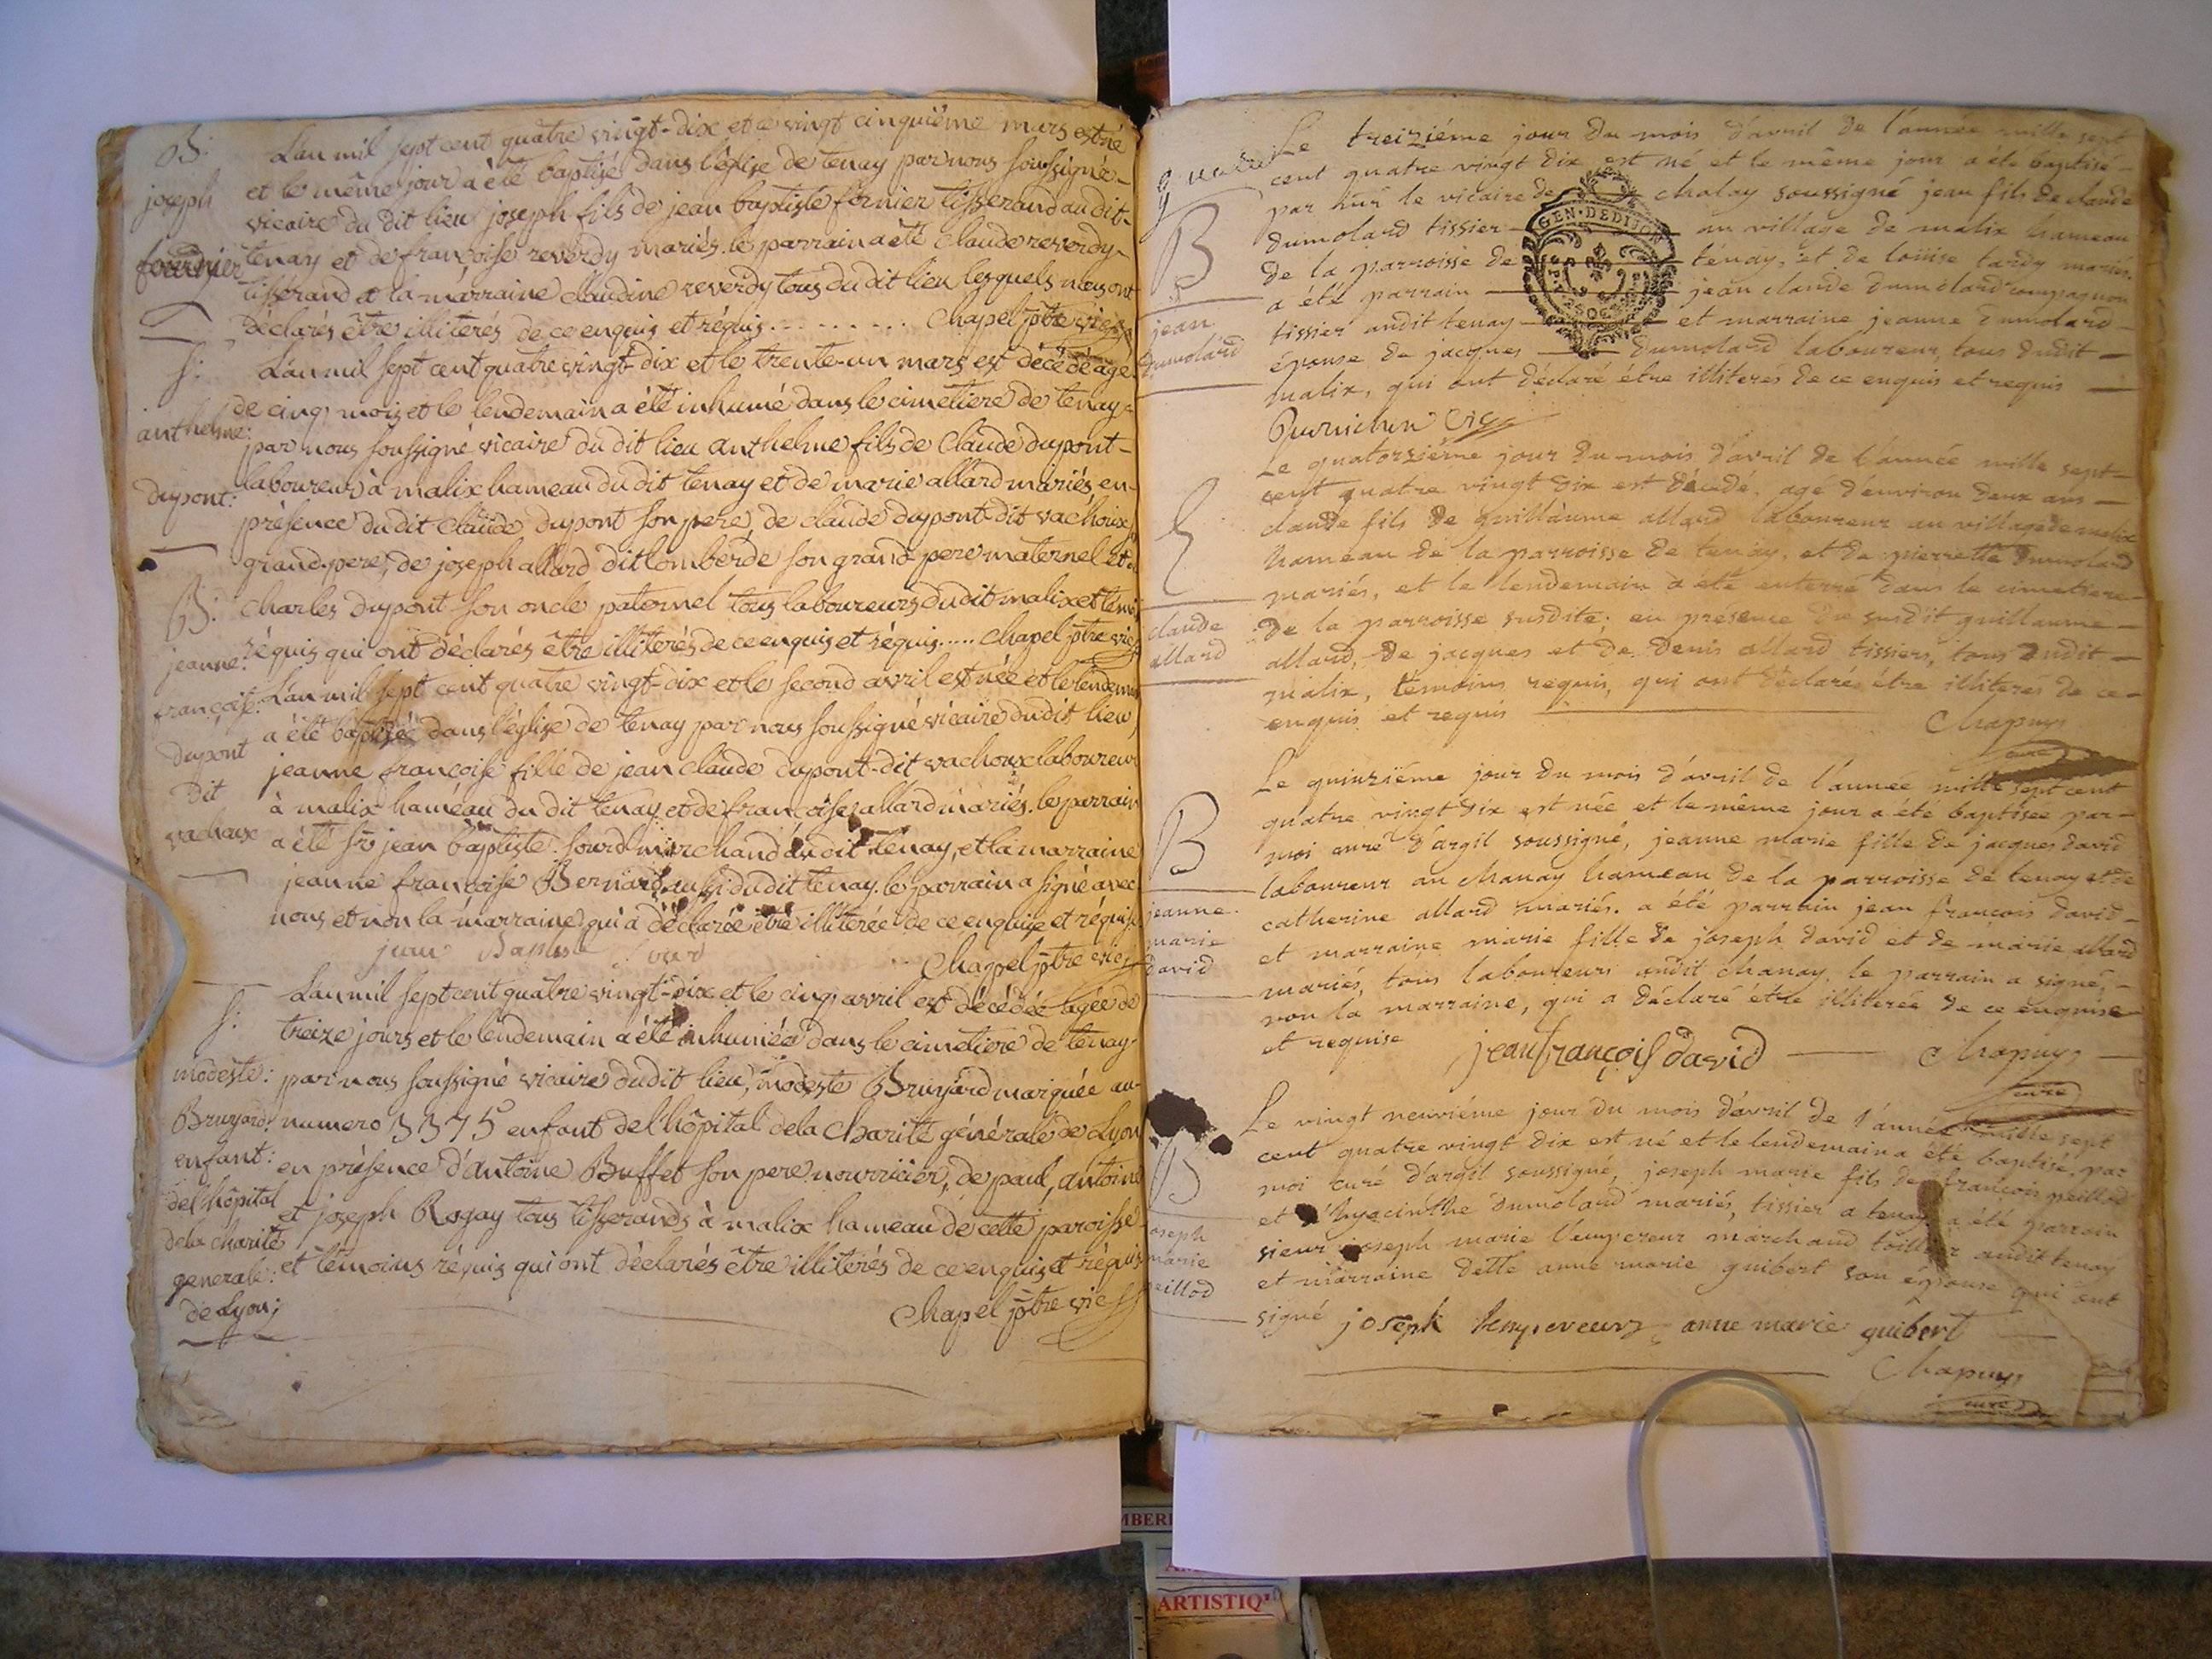 B:
joseph
fournier
L'an mil sept cent quatre vingt-dix et le vingt cinquième mars est né
et le même jour a été baptisé dans l'église de tenay par nous soussigné
vicaire du dit lieu joseph fils de jean baptiste fornier tisserand au dit
tenay et de françoise reverdy mariés. le parrain a été claude reverdy
tisserand et la marraine claudine reverdy tous du dit lieu lesquels nous ont
déclarés être illiterés de ce enquis et réquis.......... Chapel ptre vic
S:
anthelme:
dupont:
L'an mil sept cent quatre vingt-dix et le trente-un mars est décédé agé
de cinq mois et le lendemain a été inhumé dans le cimetiere de tenay
par nous soussigné vicaire du dit lieu anthelme fils de claude dupont
laboureur à malix hameau du dit tenay et de marie allard mariés, en
présence du dit claude dupont son pere, de claude dupont dit vachoux
grand-pere, de joseph allard dit lomberde son grand pere maternel et
charles dupont son oncle paternel tous laboureurs du dit malix et
réquis qui ont déclarés être illiterés de ce enquis et réquis..... Chapel ptre vic
B:
jeanne:
françoise:
dupont
dit
vachoux
L'an mil sept cent quatre vingt-dix et le second avril est née et le lendemain
a été baptisée dans l'église de tenay par nous soussigné vicaire du dit lieu
jeanne françoise fille de jean claude dupont-dit vachoux laboureur
à malix haméau du dit tenay et de françoise allard mariés. le parrain
a été sr jean baptiste sourd marchand au dit tenay, et la marraine
jeanne françoise Bernard aussi du dit tenay. le parrain a signé avec
nous et non la marraine qui a déclarée être illiterée de ce enquise et réquise
jean Baptiste Sourd
Chappel ptre vic
S:
modeste:
Bruyard:
enfant:
de l'hôpital
de la charité
generale:
de Lyon;
L'an mil sept cent quatre vingt-dix et le cinq avril est décédée agée de
treize jours et le lendemain a été inhumée dans le cimetiere de tenay
par nous soussigné vicaire du dit lieu, modeste Bruyard marquée au
numero 3375 enfant de l'hôpital de la Charité générale de Lyon
en présence d'antoine Buffet son pere nourricier, de paul, antoine
et joseph Rogay tous tisserands à malix hameau de cette paroisse
et témoins réquis qui ont déclarés être illiterés de ce enquis et réquis
Chapel ptre vic
B
jean
dumolard
Le treiziéme jour du mois d'avril de l'année mille sept
cent quatre vingt dix est né et le même jour a été baptisé
par mr le vicaire de chaley soussigné jean fils de claude
GEN·DE DIJON
dumolard tissier au village de malix hameau
de la parroisse de tenay, et de loüise tardy mariés.
a été parrain jean claude dumolard compagnon
tissier audit tenay et marraine jeanne dumolard
épouse de jacques dumolard laboureur, tous dudit
malix, qui ont déclaré être illiterés de ce enquis et requis
S
claude
allard
Le quatorziéme jour du mois d'avril de l'année mille sept
cent quatre vingt dix est décédé, agé d'environ deux ans
claude fils de guillaume allard laboureur au village de malix
hameau de la parroisse de tenay, et de pierrette dumolard
mariés, et le lendemain a été enterré dans le cimetiere
de la parroisse susdite, en présence du susdit guillaume
allard, de jacques et de denis allard tissiers, tous dudit
malix, temoins requis, qui ont déclaré être illiterés de ce
enquis et requis Chapuys
curé
B
jeanne
marie
david
Le quinziéme jour du mois d'avril de l'année mille sept cent
quatre vingt dix est née et le même jour a été baptisée par
moi curé d'argil soussigné, jeanne marie fille de jacques david
laboureur au chanay hameau de la parroisse de tenay et de
catherine allard mariés. a été parrain jean françois david
et marraine marie fille de joseph david et de marie allard
mariés, tous laboureurs audit chanay, le parrain a signé,
non la marraine, qui a déclaré être illiterée de ce enquise
et requise jean françois david Chapuys
curé
B
joseph
marie
peillod
Le vingt neuviéme jour du mois d'avril de l'année mille sept
cent quatre vingt dix est né et le lendemain a été baptisé, par
moi curé d'argil soussigné, joseph marie fils de françois peillod
et d'hyacinthe dumolard mariés, tissier a tenay a été parrain
sieur joseph marie l'empereur marchand toillier audit tenay
et marraine delle anne marie guibert son épouse qui ont
signé joseph lempereur anne marie guibert
Chapuys
curé
ARTISTIQ'